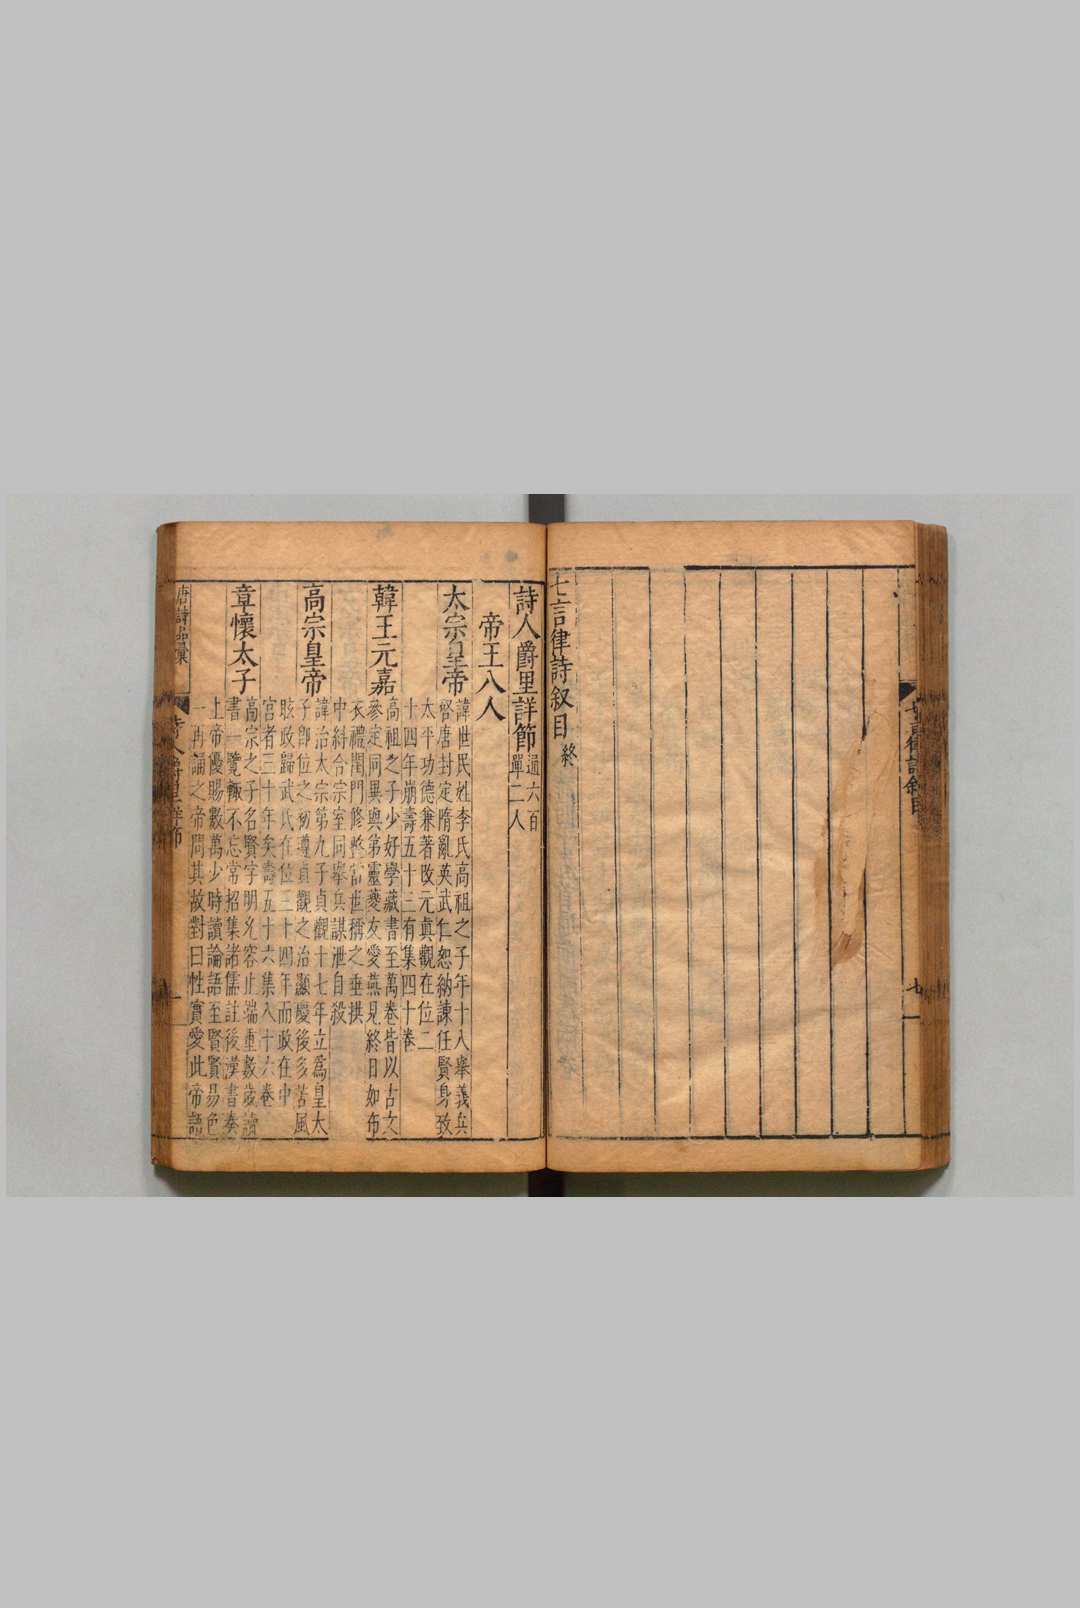 七言律詩叙目終
詩人爵里詳節 過六百
單二人
帝王八人
太宗皇帝
諱世民姓李氏高祖之子年十八舉義兵
啓唐封定隋亂英武仁恕納諫任賢身致
太平功德兼著改元貞觀在位二
十四年崩壽五十三有集四十卷
韓王元嘉
高祖之子少好學藏書至萬卷皆以古文
參定同異與弟靈夔友愛燕見終日如布
衣禮閨門修整當世稱之垂拱
中紏合宗室同舉兵謀泄自殺
高宗皇帝
諱治太宗第九子貞觀十七年立爲皇太
子即位之初遵貞觀之治顯慶後多苦風
眩政歸武氏在位三十四年而政在中
宮者三十年矣壽五十六集八十六卷
章懷太子
高宗之子名賢字明允容止端重數歲讀
書一覽輒不忘常招集諸儒註後漢書奏
上帝優賜數萬少時讀論語至賢賢易色
一再誦之帝問其故對曰性實愛此帝語
唐詩品彙
詩人爵里詳節
一